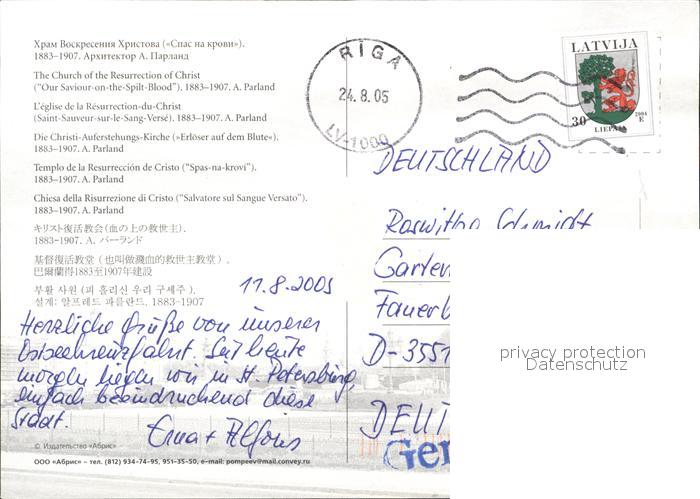 Храм Воскресения Христова («Спас на крови»).
1883–1907. Архитектор А. Парланд
The Church of the Resurrection of Christ
("Our Saviour-on-the-Spilt-Blood"). 1883–1907. A. Parland
L'église de la Résurrection-du-Christ
(Saint-Sauveur-sur-le-Sang-Versé). 1883–1907. A. Parland
Die Christi-Auferstehungs-Kirche (»Erlöser auf dem Blute«).
1883–1907. A. Parland
Templo de la Resurrección de Cristo ("Spas-na-krovi").
1883–1907. A. Parland
Chiesa della Risurrezione di Cristo ("Salvatore sul Sangue Versato").
1883–1907. A. Parland
キリスト復活教会(血の上の救世主).
1883–1907. A. パーランド
基督復活教堂(也叫做濺血的救世主教堂).
巴爾蘭得1883至1907年建設
부활 사원 (피 흘리신 우리 구세주).
설계: 알프레드 파를란드. 1883–1907
11.8.2005
Herzliche Grüße von unserer
Ostseekreuzfahrt. Seit heute
morgen liegen wir in St. Petersburg,
einfach beeindruckend diese
Stadt.
Erna + Alfons
© Издательство «Абрис»
ООО «Абрис» – тел. (812) 934-74-95, 951-35-50, e-mail: pompeev@mail.convey.ru
RĪGA
24.8.05
LV-1000
LATVIJA
30
2004
E
LIEPĀJA
DEUTSCHLAND
Roswitha Schmidt
Garten
Fauerb
D-3551
DEUT
Ger
privacy protection
Datenschutz